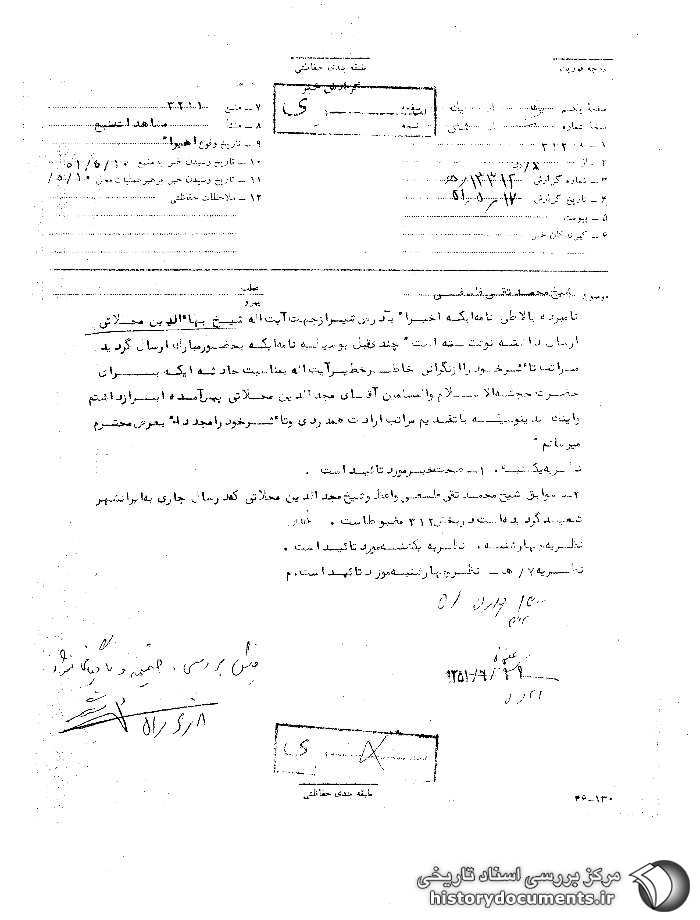 درجه فوریت
طبقه بندی حفاظتی
گزارش خبر
صفحه یکم از
نسخه شماره از
۱ — ۳۱۲
۲ — از
۳ — شماره گزارش ۱۳۳۱۲/ هـ
۴ — تاریخ گزارش ۵۱/۵/۱۷
۵ — پیوست
۶ — گیرندگان خبر
۷ — منبع ۳۲۱۱
۸ — منشأ مشاهدات منبع
۹ — تاریخ وقوع اخیرا"
۱۰ — تاریخ رسیدن خبر به منبع ۵۱/۵/۱۰
۱۱ — تاریخ رسیدن خبر به رهبر عملیات محل
۱۲ — ملاحظات حفاظتی
موضوع شیخ محمد تقی فلسفی
عطف
پیرو
نامبرده بالا طی نامه ایکه اخیرا" بآدرس شیراز جهت آیت اله شیخ بها" الدین محلاتی
ارسال داشته نوشته است" چندی قبل بوسیله نامه ایکه بحضور مبارک ارسال گردید
مراتب تاثر خود را از نگرانی خاطر خطیر آیت اله بمناسبت حادثه ایکه برای
حضرت حجت الاسلام والمسلمین آقای مجدالدین محلاتی پیش آمده ابراز داشتم
واینک بدینوسیله با تقدیم مراتب ارادت همدردی وتاثر خود را مجددا" بعرض محترم
میرسانم"
نظریه یکشنبه . ۱ — صحت خبر مورد تائید است .
۲ — سوابق شیخ محمد تقی فلسفی واعظ و شیخ مجدالدین محلاتی که در سال جاری به ایرانشهر
تبعید گردیده است در بخش ۳۱۲ مضبوط است .
نظریه چهارشنبه . نظریه یکشنبه مورد تائید است .
نظریه ۷/هـ — نظریه چهارشنبه مورد تائید است . م
۱۳۵۱/۶/
۵۱/۶/۸
طبقه بندی حفاظتی
۴۵—۱۳۰
مرکز بررسی اسناد تاریخی
historydocuments.ir